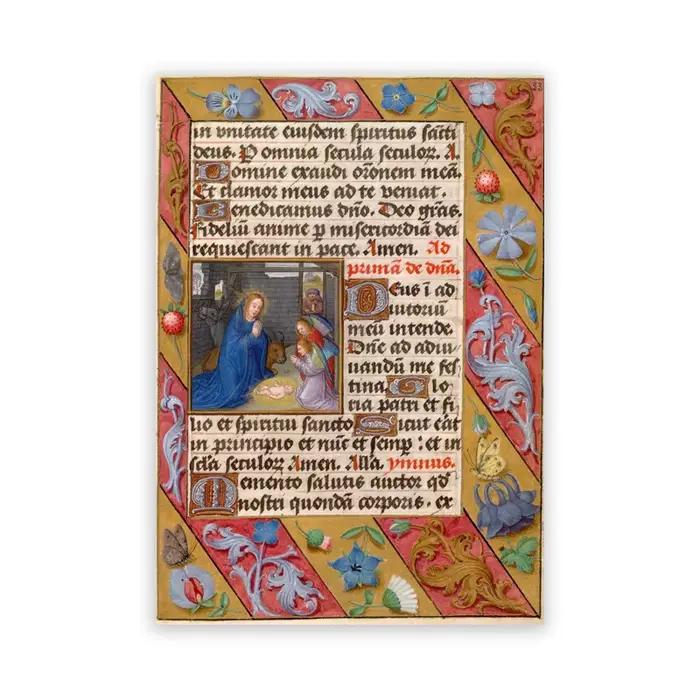 33
in vnitate eiusdem spiritus sācti
deus. P omnia secula seculoꝝ. A.
Domine exaudi orōnem meā.
Et clamor meus ad te veniat.
Benedicamus dño. Deo grās.
Fideliū anime p misericordiā dei
requiescant in pace. Amen. Ad
primā de dñā.
Deus ī ad
iutoriū
meū intende.
Dñe ad adiu
uandū me fes
tina. Glo
ria patri et fi
lio et spiritui sancto Sicut eāt
in principio et nūc et semp : et in
scľa seculoꝝ Amen. Alľa. ymnus.
Memento salutis auctor qđ
nostri quondā corporis. ex